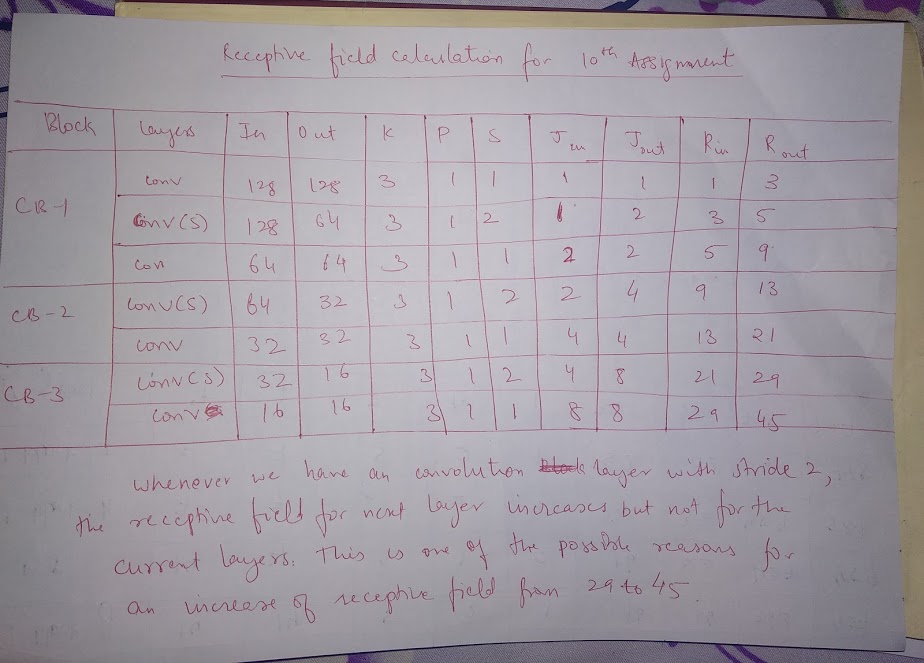 Receptive field calculation for 10th Assignment
Block Layers In Out K P S Jin Jout Rin Rout
CB-1 conv 128 128 3 1 1 1 1 1 3
conv(S) 128 64 3 1 2 1 2 3 5
con 64 64 3 1 1 2 2 5 9
CB-2 conv(S) 64 32 3 1 2 2 4 9 13
conv 32 32 3 1 1 4 4 13 21
CB-3 conv(S) 32 16 3 1 2 4 8 21 29
conv 16 16 3 1 1 8 8 29 45
whenever we have an convolution layer with stride 2,
the receptive field for next layer increases but not for the
current layers. This is one of the possible reasons for
an increase of receptive field from 29 to 45